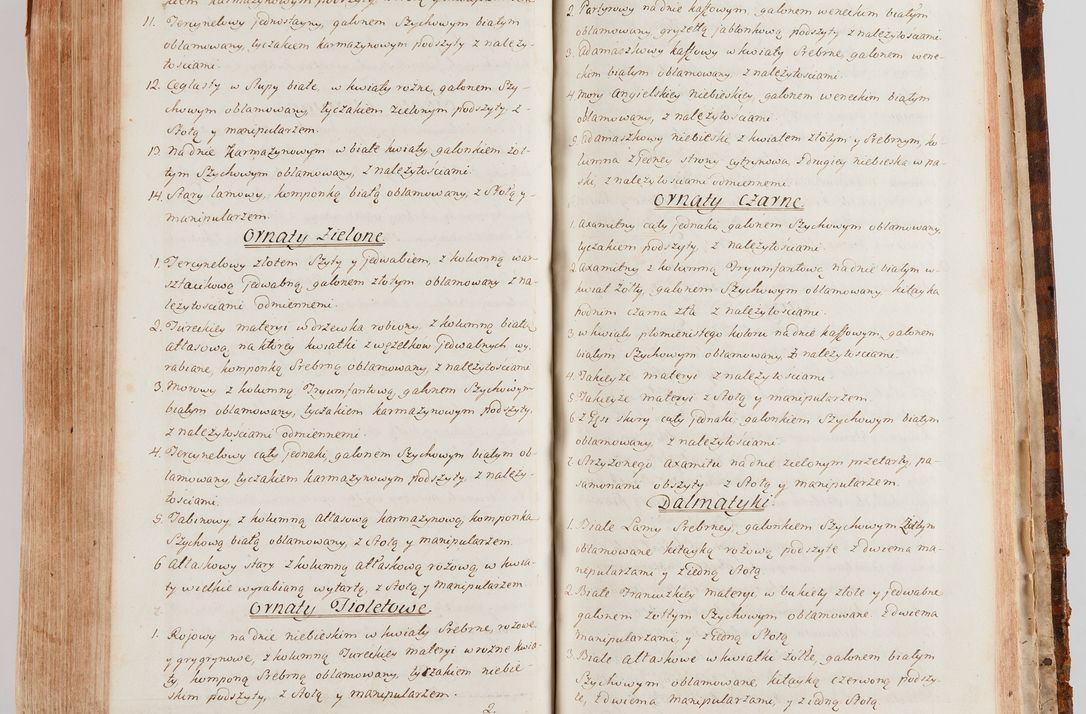 11. Tercynelowy jednostayny, galonem Szychowym białym
obłamowany, łyczakiem karmazynowym podszyty z należy-
tościami.
12. Ceglasty w słupy białe, w kwiaty rożne, galonem Szy-
chowym obłamowany, łyczakiem zielonym podszyty z
Stołą y manipularzem.
13. Na dnie Karmazynowym w białe kwiaty, galonkiem żoł-
tym Szychowym obłamowany, z należytościami.
14. Stary lamowy, komponką białą obłamowany, z Stołą y
manipularzem.
Ornaty Zielone.
1. Tercynelowy złotem Szyty y Jedwabiem, z kolumną war-
sztacikową Jedwabną, galonem złotym obłamowany z na-
leżytościami odmiennemi.
2. Tureckiey materyi w drzewka robiony, z kolumną białą
atłasową, na ktorey kwiatki z wężełkow Jedwabnych wy-
rabiane, komponką Srebrną obłamowany, z należytościami
3. Morowy z kolumną Tryumfantową, galonem Szychowym
białym obłamowany, łyczakiem karmazynowym podszyty,
z należytościami odmiennemi.
4. Tercynelowy cały Jednaki, galonem Szychowym białym ob-
łamowany, łyczakiem karmazynowym podszyty, z należy-
tościami.
5. Tabinowy, z kolumną atłasową karmazynową, komponką
Szychową białą obłamowany, z Stołą y manipularzem.
6 Atłaskowy stary z kolumną atłaskową rożową, w kwia-
ty wielkie wyrabianą wytartą, z Stołą y Manipularzem
Ornaty Fioletowe
1. Rojowy na dnie niebieskim w kwiaty Srebrne, rożowe
y grygrynowe, z kolumną Tureckiey materyi w rożne kwia-
ty, komponą Srebrną obłamowany, łyczakiem niebie-
skim podszyty, z Stołą y manipularzem.
2.
2. Partyrowy na dnie kaffowym, galonem weneckim białym
obłamowany, gryzettą jabłonkową podszyty z należytościami.
3. Adamaszkowy kaffowy w kwiaty Srebrne, galonem wene-
ckim białym obłamowany, z należytościami.
4 Mory Angielskiey niebieskiey, galonem weneckim białym
obłamowany, z należytościami.
5. Adamaszkowy niebieski z kwiatem złotym y Srebrnym, ko-
lumna z Jedney strony cytrynowa, z drugiey niebieska w pa-
ski, z należytościami odmiennemi.
Ornaty Czarne.
1. Axamitny cały Jednaki, galonem Szychowym obłamowany,
łyczakiem podszyty, z należytościami.
2. Axamitny z kolumną Tryumfantową na dnie białym w
kwiat żołty, galonem Szychowym obłamowany kitayka
podnim czarna zła z należytościami.
3 w kwiaty płomienistego koloru na dnie kaffowym, galonem
białym Szychowym obłamowany, z należytościami.
4. Takieyże materyi z należytościami.
5 Takieyże materyi z Stołą y manipularzem.
6 z Gęsi skury cały Jednaki, galonkiem Szychowym białym
obłamowany, z należytościami.
7. Strzyżonego axamitu na dnie zielonym przetarty, pa-
samonami obszyty z Stołą y manipularzem.
Dalmatyki.
1. Białe Lamy Srebrney, galonkiem Szychowym Żółtym
obłamowane kitayką rożową podszyte z dwiema ma-
nipularzami y z Jedną Stołą
2 Białe Francuzkiey materyi, w bukiety złote y Jedwabne
galonem żołtym Szychowym obłamowane. Z dwiema
Manipularzami, y z Jedną Stołą
3. Białe Atłaskowe w kwiatki żółte, galonem białym
Szychowym, obłamowane, kitayką czerwoną podszy-
te, z dwiema Manipularzami, y z Jedną Stołą.